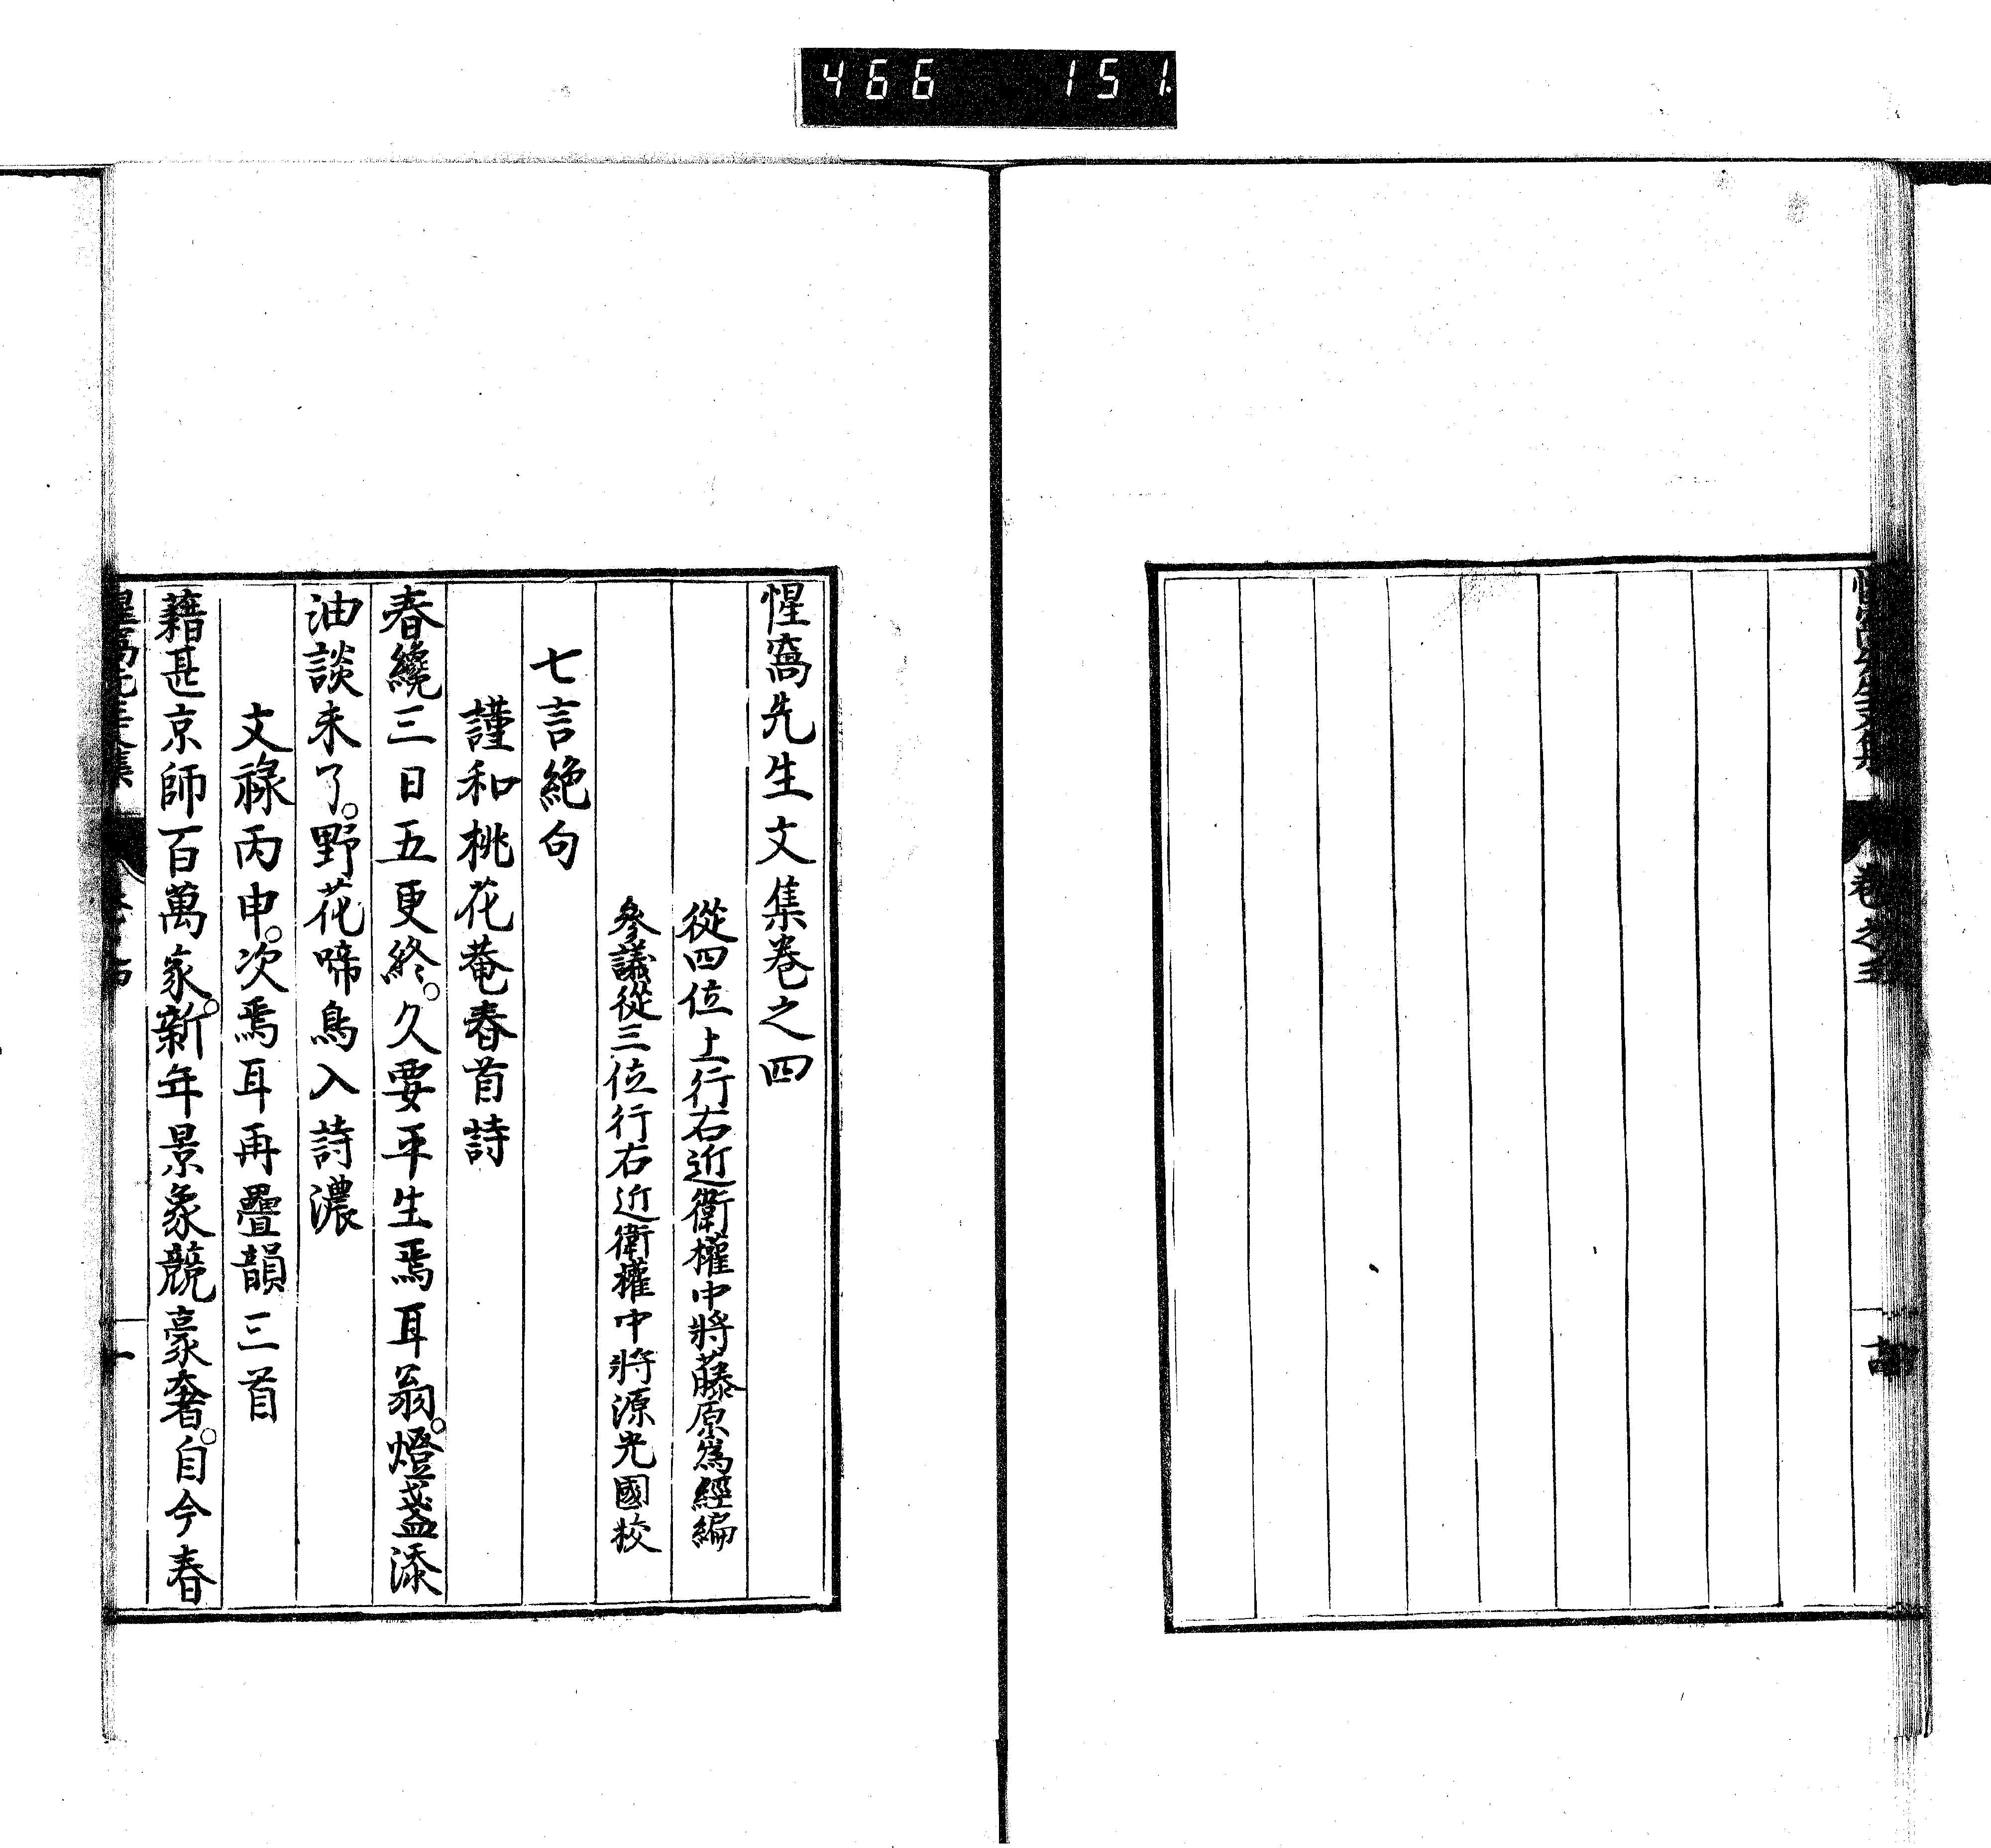 466 151
惺窩先生文集卷之四
從四位上行右近衛權中將藤原為經編
參議從三位行右近衛權中將源光國校
七言絶句
謹和桃花菴春首詩
春纔三日五更終。久要平生焉耳翁。燈盞添
油談未了。野花啼鳥入詩濃
文祿丙申。次焉耳再疊韻三首
藉甚京師百萬家。新年景象競豪奢。自今春